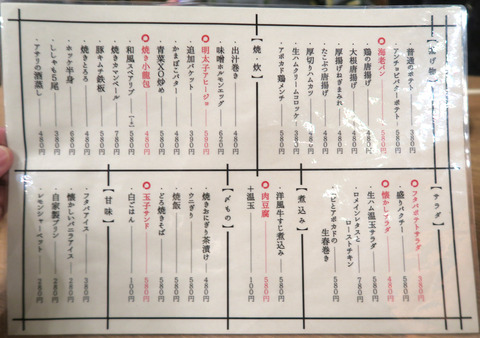 揚げ物】
・普通のポテト 380円
・アンチョビバターポテト 580円
◎海老パン 580円
・鶏の唐揚げ 580円
・大根唐揚げ 480円
・厚揚げねぎまみれ 480円
・たこぶつ唐揚げ 580円
・厚切りハムカツ 480円
・生ハムクリームコロッケ 380円
・アボカド鶏メンチ 580円
【焼・炊】
・出汁巻き 480円
・味噌ホルモンエッグ 620円
◎明太子アヒージョ 590円
・追加バケット 390円
・かまぼこバター 480円
・青菜XO炒め 580円
◎焼き小籠包 480円
・和風スペアリブ 580円
・焼きカマンベール 780円
・豚キムチ鉄板 580円
・焼きとろろ 580円
・ホッケ半身 680円
・ししゃも5尾 380円
・アサリの酒蒸し 480円
【サラダ】
◎フタバポテトサラダ 380円
・盛りパクチー 580円
◎懐かしサラダ 480円
・生ハム温玉サラダ 580円
・ロメインレタスと
ローストチキン 780円
ビとアボカドの
生春巻き 580円
【煮込み】
・洋風牛すじ煮込み 580円
◎肉豆腐 580円
+温玉 100円
【〆もの】
・焼きおにぎり茶漬け 480円
・ウニぎり 580円
・焼飯 580円
・どろ焼きそば 580円
◎玉子サンド 580円
・白ごはん 100円
【甘味】
・フタバアイス 580円
・懐かしバニラアイス 280円
・自家製プリン 380円
・レモンシャーベット 280円